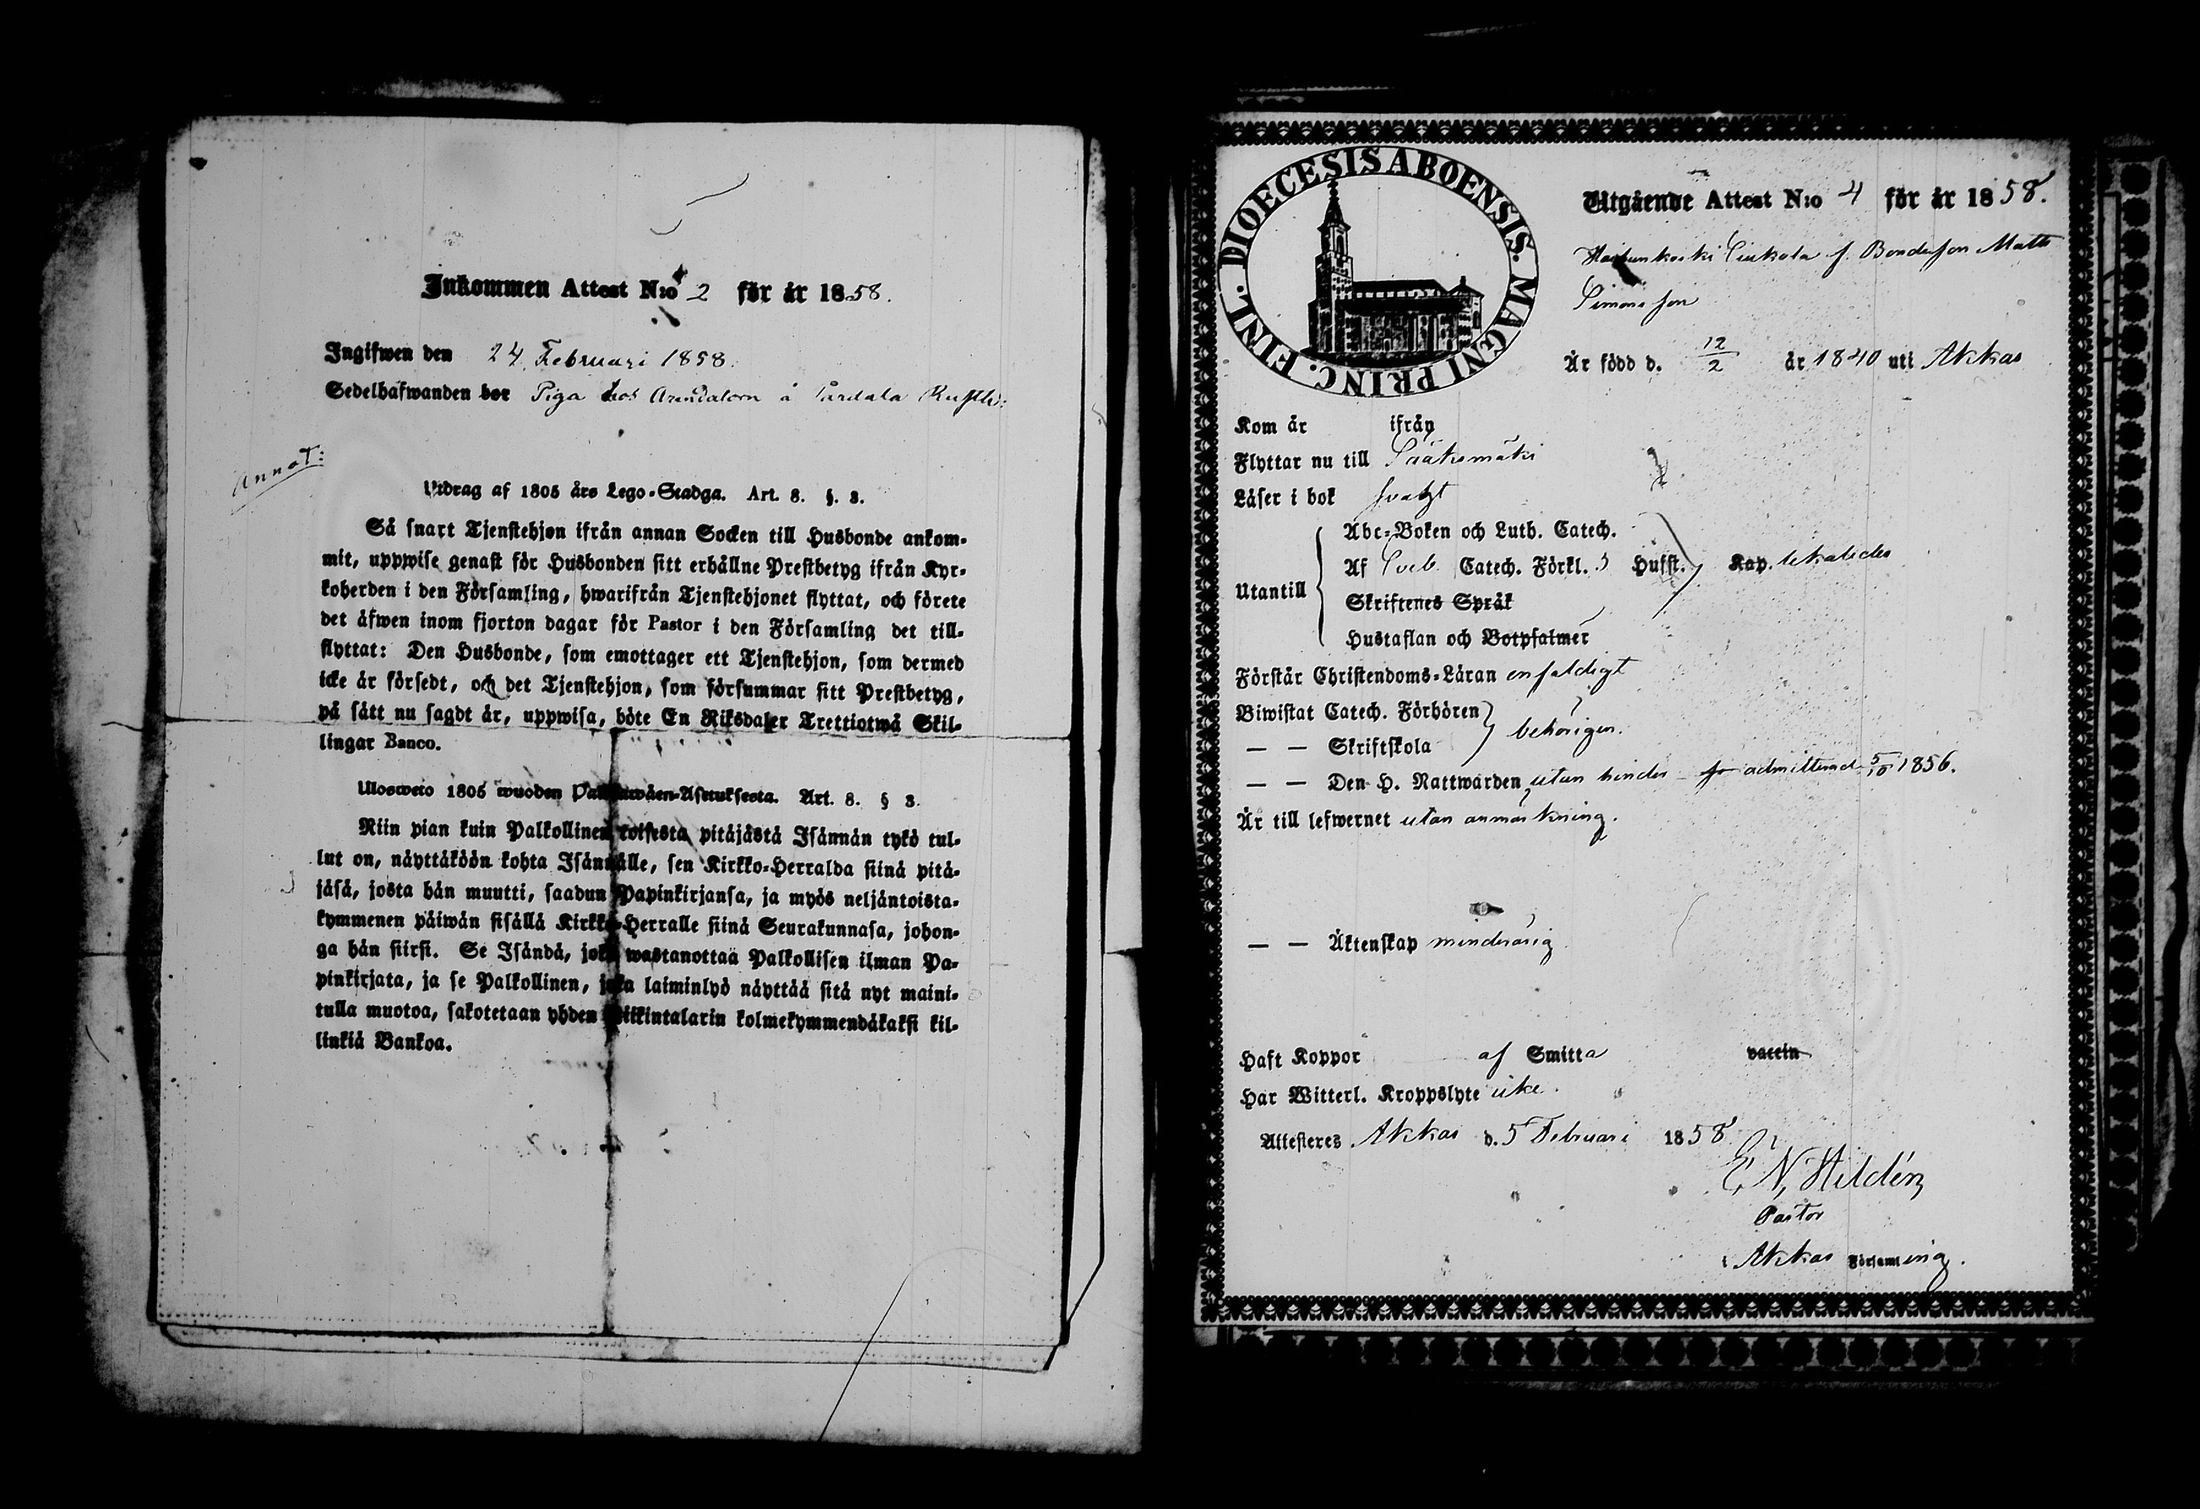 Inkommen Attest N:o 2 för år 1858.
Ingifwen den 24 Februari 1858.
Sedelhafwanden bor Piga hos Arendatorn å
Annot:
Utdrag af 1805 års Lego-Stadga. Art. 8. §. 3.
Så snart Tjenstehjon ifrån annan Socken till Husbonde ankom-
mit, uppwise genast för Husbonden sitt erhållne Prestbetyg ifrån Kyr-
koherden i den Församling, hwarifrån Tjenstehjonet flyttat, och förete
det äfwen inom fjorton dagar för Pastor i den Församling det till-
flyttat: Den Husbonde, som emottager ett Tjenstehjon, som dermed
icke är försedt, och det Tjenstehjon, som försummar sitt Prestbetyg,
på sätt nu sagdt är, uppwisa, böte En Riksdaler Trettiotwå Skil-
lingar Banco.
Ulosweto 1805 wuoden Palkkawäen-Asetuksesta. Art. 8. § 3.
Niin pian kuin Palkollinen toisesta pitäjästä Isännän tykö tul-
lut on, näyttäköön kohta Isännälle, sen Kirkko-Herralda siinä pitä-
jäsä, josta hän muutti, saadun Papinkirjansa, ja myös neljäntoista-
kymmenen päiwän sisällä Kirkko-Herralle siinä Seurakunnasa, johon-
ga hän siirsi. Se Isändä, joka wastanottaa Palkollisen ilman Pa-
pinkirjata, ja se Palkollinen, joka laiminlyö näyttää sitä nyt maini-
tulla muotoa, sakotetaan yhden Riikintalarin kolmekymmendäkaksi kil-
linkiä Bankoa.
DIOECESIS ABOENSIS. MAGNI PRINC. FINL.
Utgående Attest N:o 4 för år 1858.
f. Bondeson Matts
Simonsson
Är född d. 12/2 år 1840 uti Akkas
Kom år ifrån
Flyttar nu till Sääksmäki
Läser i bok svagt
Utantill
Abc-Boken och Luth. Catech.
Af Sveb. Catech. Förkl. 5 Hufst. Kap.
Skriftenes Språk
Hustaflan och Botpsalmer
Förstår Christendoms-Läran enfaldigt
Biwistat Catech. Förhören
behörigen.
— — Skriftskola
— — Den H. Nattwarden utan hinder admitterad 5/10 1856.
Är till lefwernet utan anmärkning.
— — Äktenskap minderårig
Haft Koppor af Smitta vaccin
Har Witterl. Kroppslyte icke.
Attesteres Akkas d. 5 Februari 1858
E. N. Hildén
Pastor
i Akkas Församling.